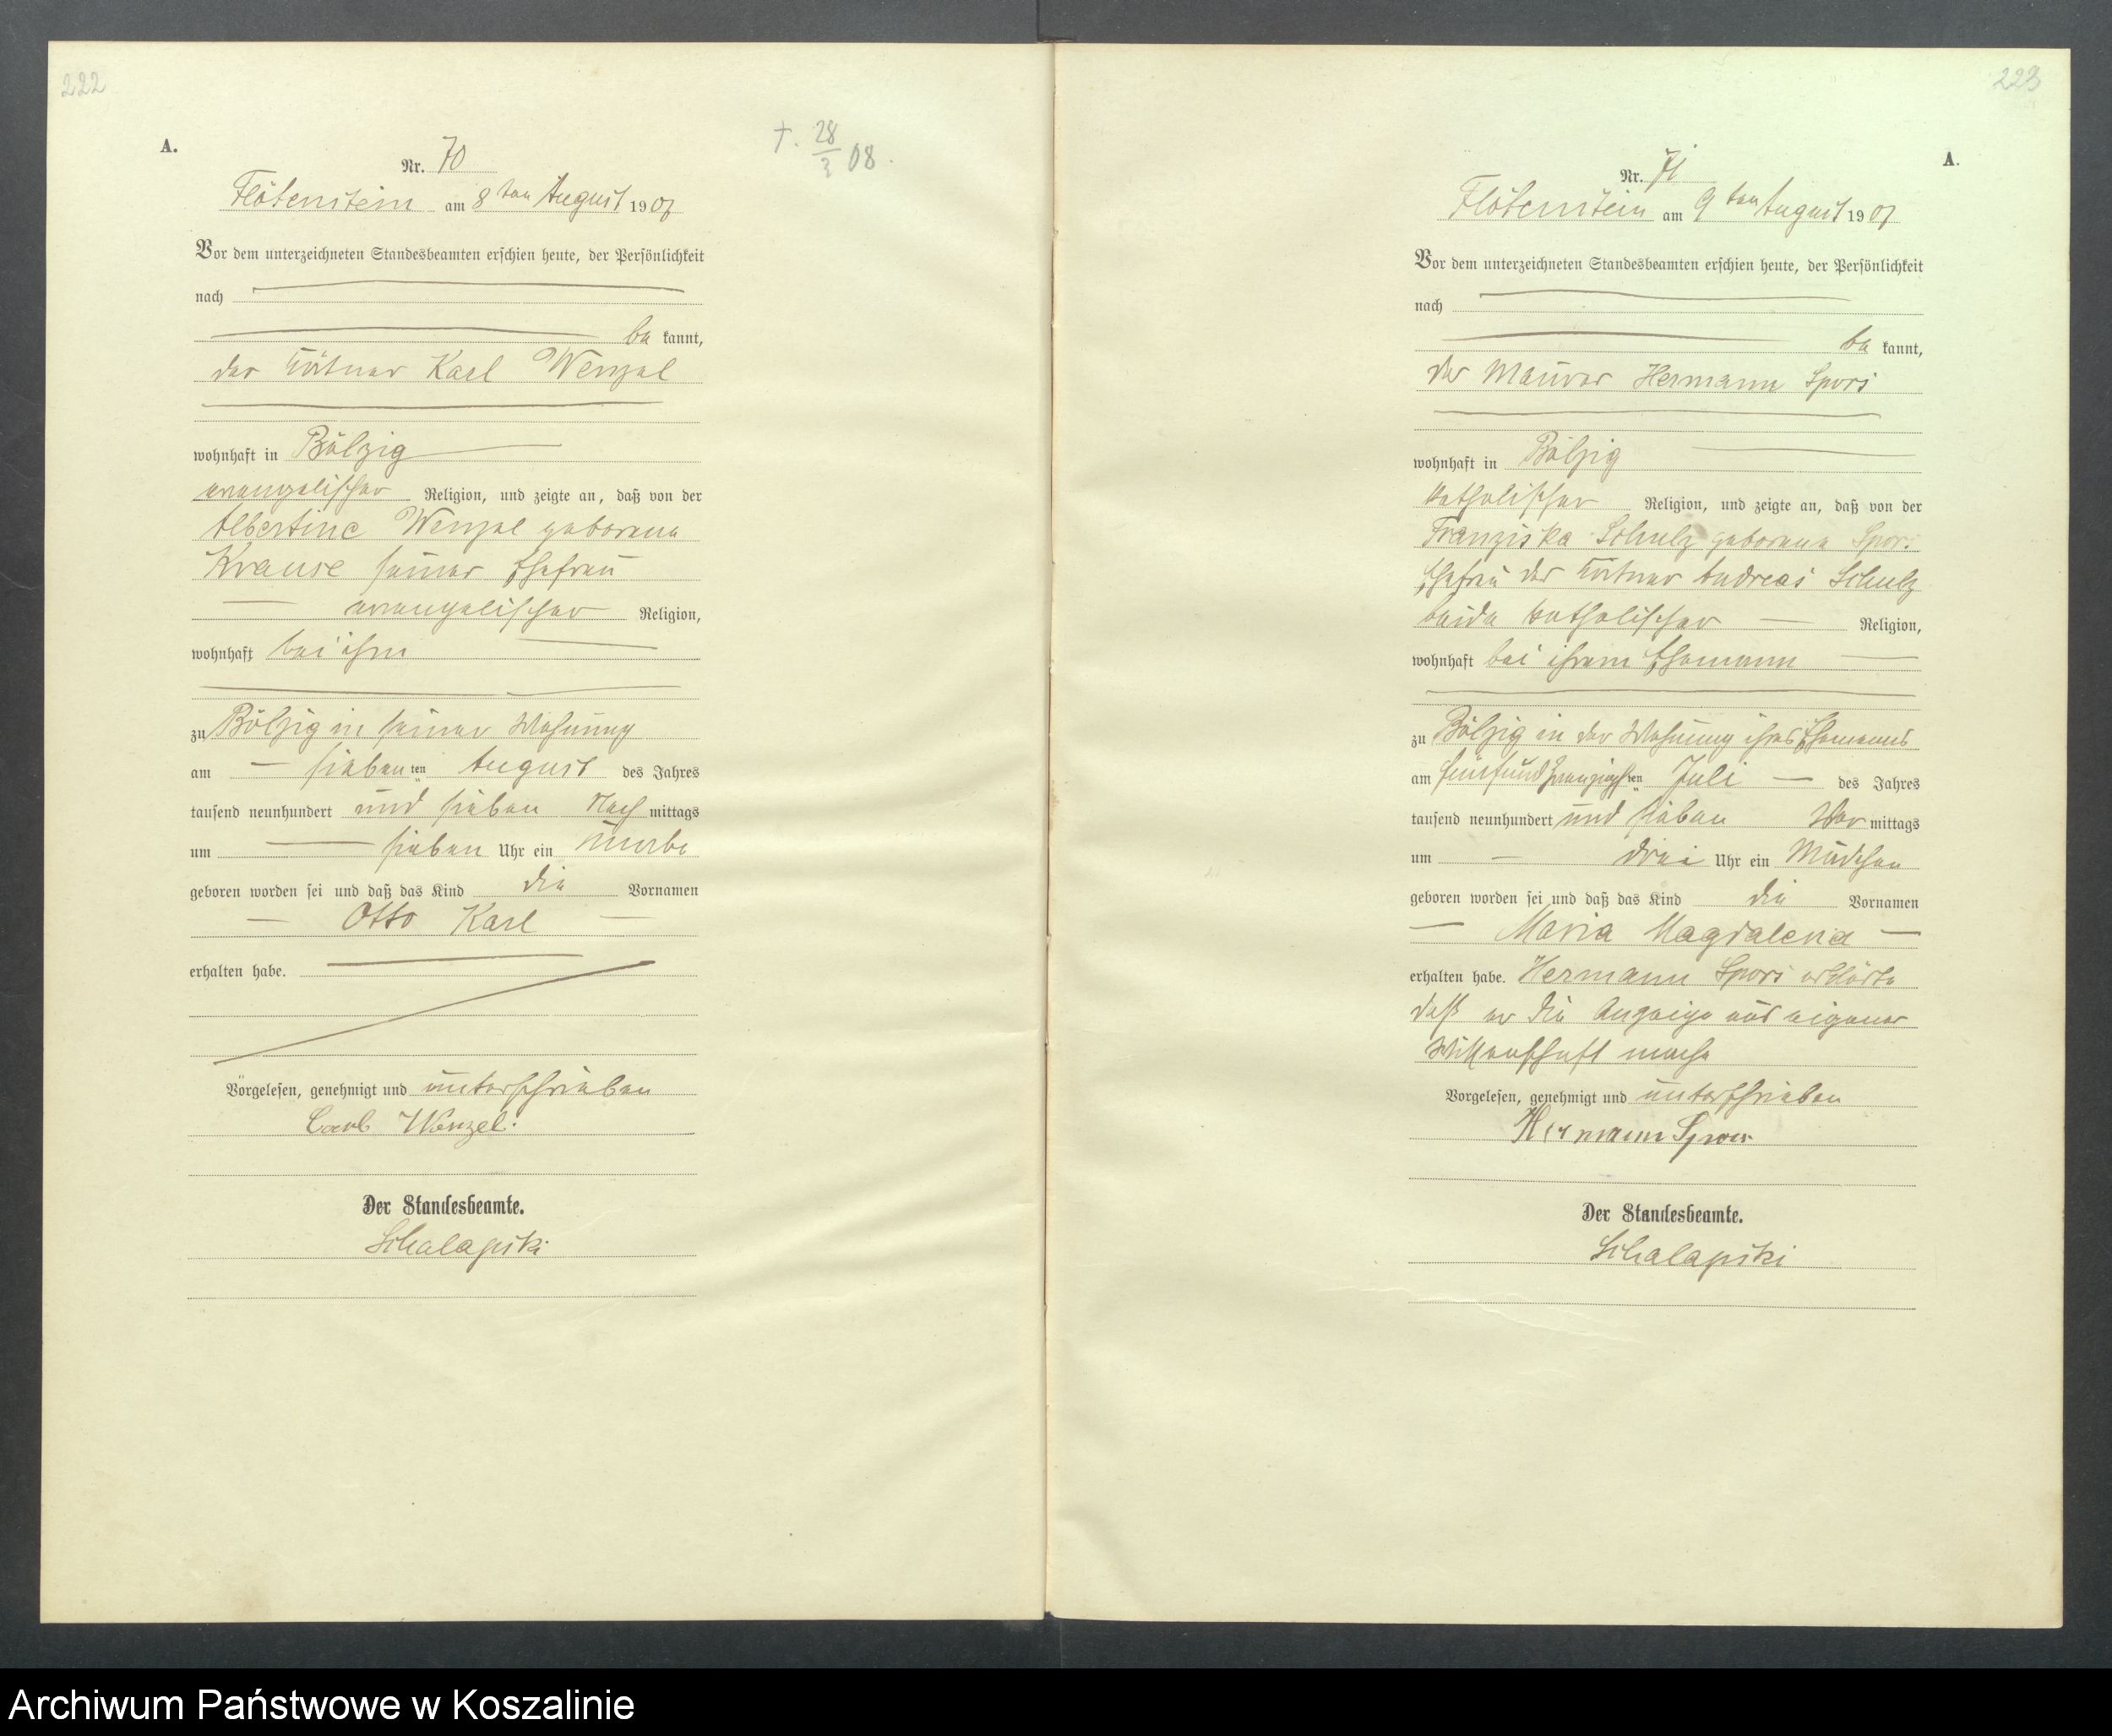 222
A.
Nr. 70
†. 28/3 08.
Flötenstein am 8ten August 1907
Vor dem unterzeichneten Standesbeamten erschien heute, der Persönlichkeit
nach
be kannt,
der Kötner Karl Wenzel
wohnhaft in Bölzig
evangelischer Religion, und zeigte an, daß von der
Albertine Wenzel geborene
Krause seiner Ehefrau
evangelischer Religion,
wohnhaft bei ihm
zu Bölzig in seiner Wohnung
am siebenten August des Jahres
tausend neunhundert und sieben Nach mittags
um sieben Uhr ein Knabe
geboren worden sei und daß das Kind die Vornamen
Otto Karl
erhalten habe.
Vorgelesen, genehmigt und unterschrieben
Carl Wenzel.
Der Standesbeamte.
Schalapski
223
A.
Nr. 71
Flötenstein am 9ten August 1907
Vor dem unterzeichneten Standesbeamten erschien heute, der Persönlichkeit
nach
be kannt,
der Maurer Hermann Spors
wohnhaft in Bölzig
katholischer Religion, und zeigte an, daß von der
Franziska Schulz geborene Spors
Ehefrau des Kötner Andreas Schulz
beide katholischer Religion,
wohnhaft bei ihrem Ehemann
zu Bölzig in der Wohnung ihres Ehemanns
am fünfundzwanzigsten Juli des Jahres
tausend neunhundert und sieben Vor mittags
um drei Uhr ein Mädchen
geboren worden sei und daß das Kind die Vornamen
Maria Magdalena
erhalten habe. Hermann Spors erklärte
daß er die Anzeige aus eigener
Wissenschaft mache
Vorgelesen, genehmigt und unterschrieben
Hermann Spors
Der Standesbeamte.
Schalapski
Archiwum Państwowe w Koszalinie